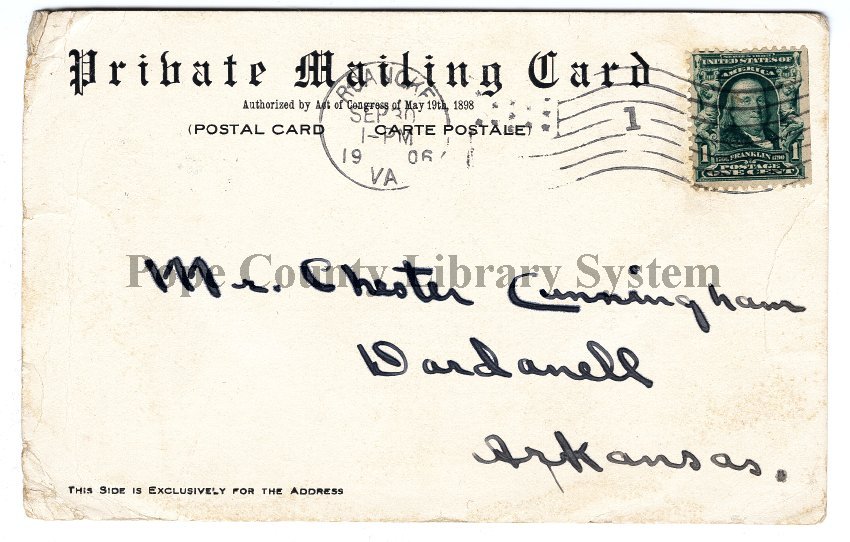 Private Mailing Card
Authorized by Act of Congress of May 19th, 1898
(POSTAL CARD CARTE POSTALE)
ROANOKE
SEP 30
1-PM
19 06
VA
1
UNITED STATES OF
AMERICA
1 FRANKLIN 1
POSTAGE
ONE CENT
Pope County Library System
Mr. Chester Cunningham
Dardanell
Arkansas.
THIS SIDE IS EXCLUSIVELY FOR THE ADDRESS